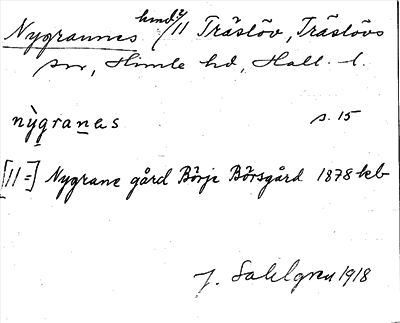 Nygrannes hmd 4/11 Träslöv, Träslövs
sn, Himle hd, Hall. l.
nỳgranas s. 15
[11=] Nygrane gård Börje Börsgård 1878 kb
J. Sahlgren 1918